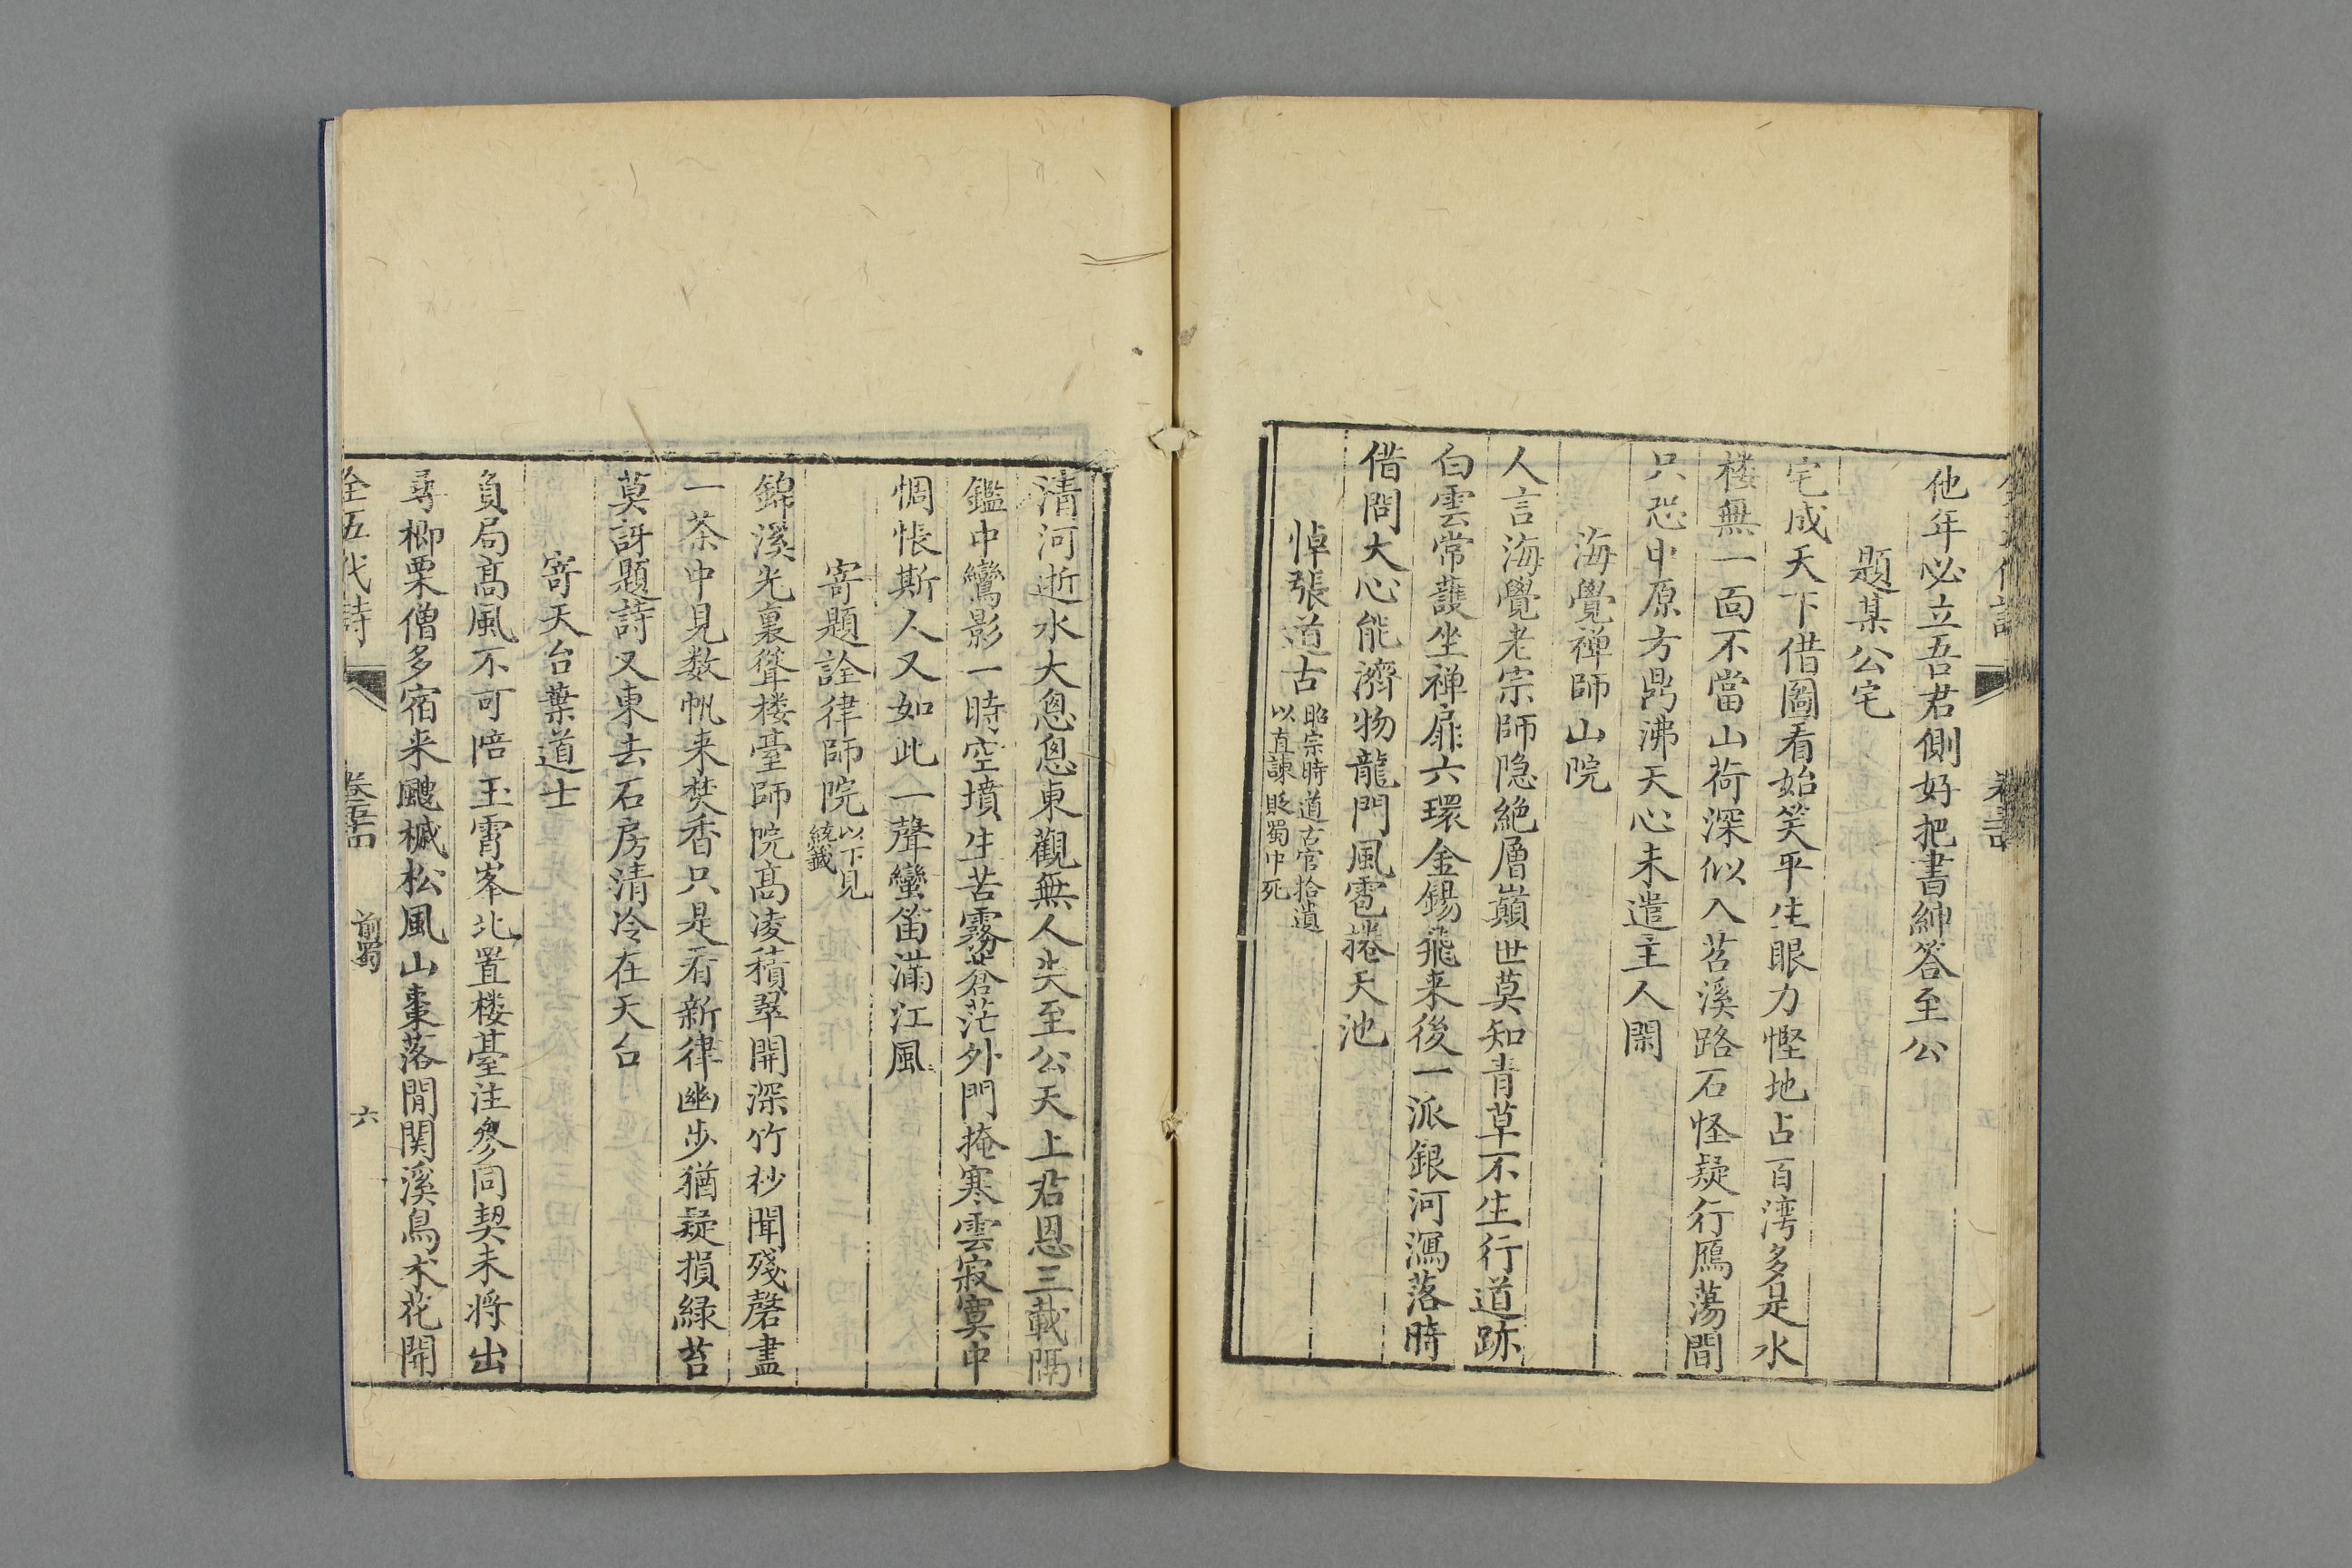 他年必立吾君側好把書紳答至公
題某公宅
宅成天下借圖看始笑平生眼力慳地占百湾多是水
楼無一面不當山荷深似入苕溪路石怪疑行鴈蕩間
只恐中原方鼎沸天心未遣主人閑
海覺禅師山院
人言海覺老宗師隐絶層巔世莫知青草不生行道跡
白雲常護坐禅扉六環金錫飛来後一派銀河瀉落時
借問大心能濟物龍門風雹捲天池
悼張道古 昭宗時道古官拾遺
以直諫貶蜀中死
清河逝水大悤悤東觀無人失至公天上君恩三載隔
鑑中鸞影一時空墳生苦霧蒼茫外門掩寒雲寂寞中
惆悵斯人又如此一聲蠻笛滿江風
寄題詮律師院 以下見
統籖
錦溪光裏聳楼臺師院高凌積翠開深竹杪聞殘磬盡
一茶中見数帆来焚香只是看新律幽步猶疑損緑苔
莫訝題詩又東去石房清冷在天台
寄天台葉道士
負局高風不可陪玉霄峯北置楼臺注參同契未将出
尋柳栗僧多宿来飀槭松風山棗落閒関溪鳥木花開
全五代詩 卷五十四 前蜀 六